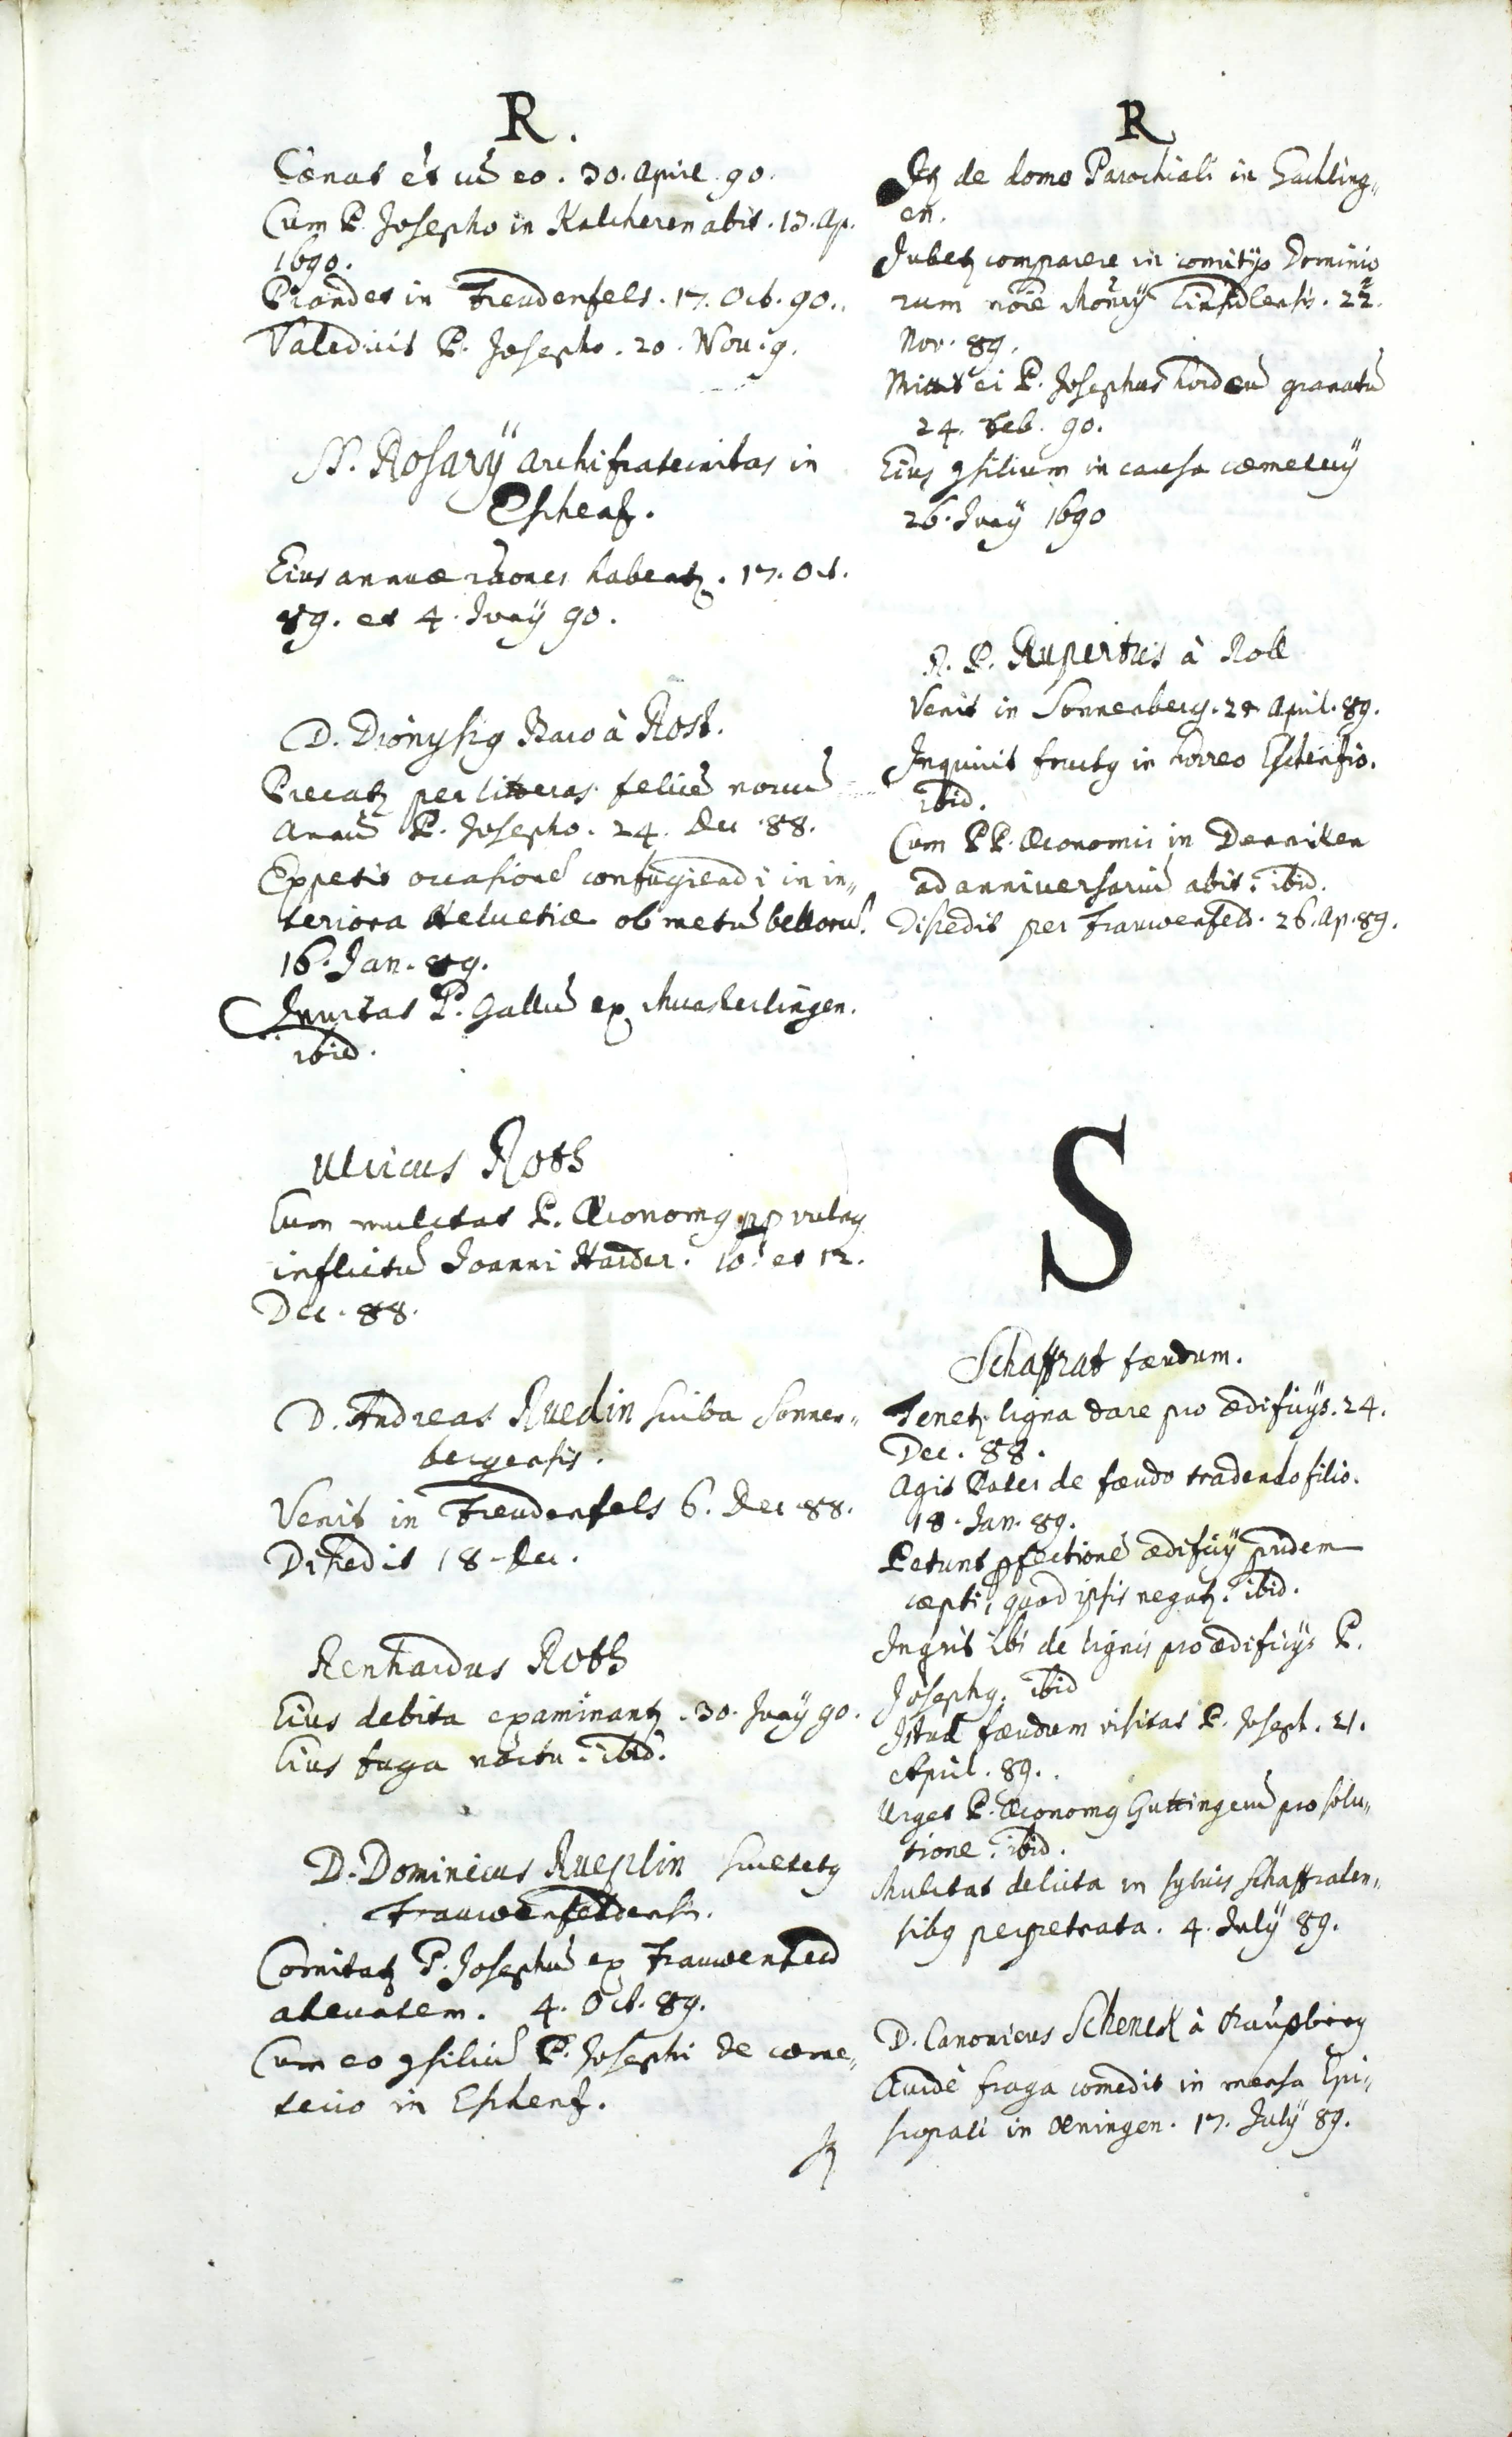 R.
Cœnat et cū eo. 30. April 90.
Cum P. Josepho in Kalcheren abit. 13. Ap.
1690.
Prandet in Freudenfels. 17. Oct. 90.
Valedicit P. Josepho. 20. Nov. 9.
SS. Rosarÿ Archifraternitas in
Eschenz.
Eius annuæ raōnes habentꝫ. 17. Oct.
89. et 4. Junÿ 90.
D. Dionysiꝰ Baro à Rost.
Precatꝫ per litteras felicē novū
annū P. Josepho. 24. Dec. 88.
Expetit occasionē confugiendi in in„
teriora Helvetiæ ob metū bellorū.
16. Jan. 89.
Invitat P. Gallū ex Munsterlingen.
ibid.
Ulricus Roth
Eum mulctat P. Œconomꝰ pp vulnꝰ
inflictū Joanni Harder. 10. et 12.
Dec. 88.
D. Andreas Ruedin scriba Sonnen„
bergensis.
Venit in Freudenfels 6. Dec. 88.
Discedit 18. Dec.
Renhardus Roth
Eius debita examinantꝫ. 30. Junÿ 90.
Eius fuga noctu. ibid.
D. Dominicus Rueplin
Frauwenfeldensis.
Comitatꝫ P. Josephū ex Frauwenfeld
abeuntem. 4. Oct. 89.
Cum eo ꝯsiliū P. Josephi de cœme„
terio in Eschenz.
Itꝫ
R
Itꝫ de domo Parochiali in Hachling„
en.
Jubetꝫ comparere in comitÿs Dominio
rum noīe Monrÿ Einsidlensis. 22.
Nov. 89.
Mittit ei P. Josephus hordeū granatū
24. Feb. 90.
Eius ꝯsilium in causa cœmeterÿ
26. Junÿ 1690
R. P. Rupertus à Roll
Venit in Sonnenberg. 24. April. 89.
Inquirit fructꝰ in horreo Eschensio.
ibid.
Cum PP. Œconomis in Denniken
ad anniversariū abit. ibid.
Discedit per Frauwenfeld. 26. Ap. 89.
S
Schaffrat fœudum.
Tenetꝫ ligna dare pro ædificÿs. 24.
Dec. 88.
Agit Pater de fœudo tradendo filio.
18. Jan. 89.
Petunt ꝑfectionē ædificÿ pridem
cœpti, quod ipsis negatꝫ. ibid.
Inqrit ibi de lignis pro ædificÿs P.
Josephꝰ. ibid
Istud fœudum visitat P. Joseph. 21.
April. 89.
Urget P. Œconomꝰ Guttingerū pro solu„
tione. ibid.
Mulctat delicta in sylvis Schaffraten„
sibꝰ perpetrata. 4. Julÿ 89.
D. Canonicus Schenck à
Avidè fraga comedit in mensa Epi„
scopali in Œningen. 17. Julÿ 89.